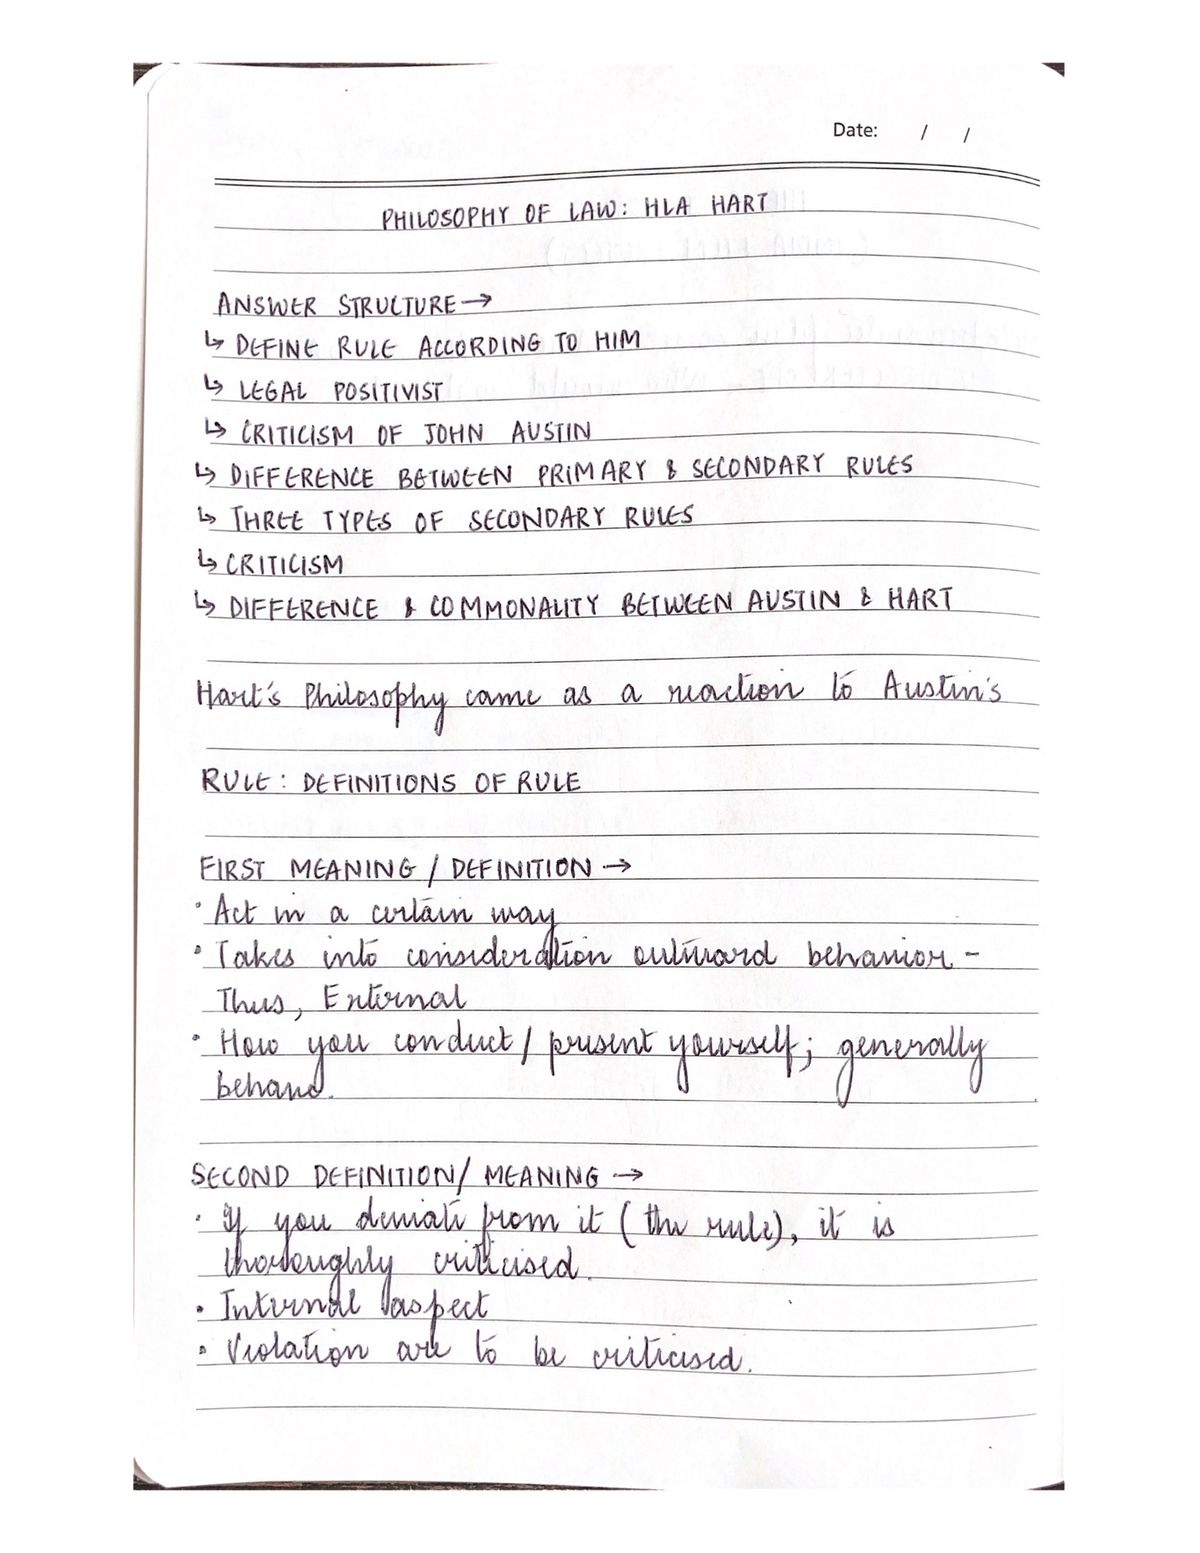 Date: / /
PHILOSOPHY OF LAW: HLA HART
ANSWER STRUCTURE →
↳ DEFINE RULE ACCORDING TO HIM
↳ LEGAL POSITIVIST
↳ CRITICISM OF JOHN AUSTIN
↳ DIFFERENCE BETWEEN PRIMARY & SECONDARY RULES
↳ THREE TYPES OF SECONDARY RULES
↳ CRITICISM
↳ DIFFERENCE & COMMONALITY BETWEEN AUSTIN & HART
Hart's Philosophy came as a reaction to Austin's
RULE: DEFINITIONS OF RULE
FIRST MEANING / DEFINITION →
• Act in a certain way
• Takes into consideration outward behavior -
Thus, External
• How you conduct / present yourself; generally
behave.
SECOND DEFINITION/ MEANING →
• If you deviate from it (the rule), it is
thoroughly criticised.
• Internal aspect
• Violation are to be criticised.